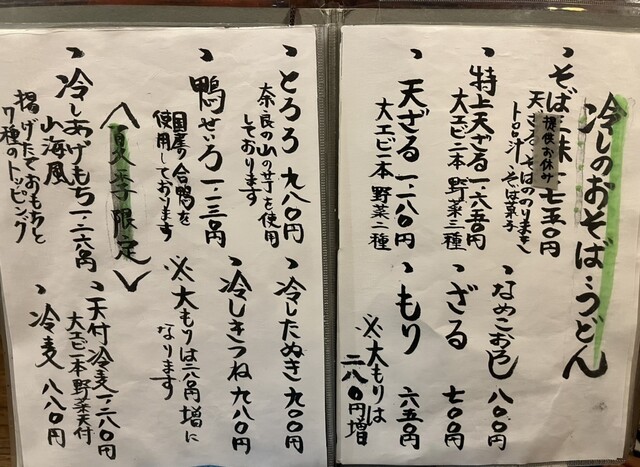 冷しのおそば・うどん
、そば三昧 一、七五〇円
提供お休み
天ざる、そばののりまき
トロロ汁、そば菓子
、特上天ざる 一、六五〇円
大エビ二本 野菜三種
、天ざる 一、一八〇円
大エビ一本 野菜二種
、なめこおろし 八〇〇円
、ざる 七〇〇円
、もり 六五〇円
※大もりは
二八〇円増
、とろろ 九八〇円
奈良の山の芋を使用
しております
、鴨せいろ 一、一三〇円
国産の合鴨を
使用しております
、冷したぬき 九〇〇円
、冷しきつね 九八〇円
※大もりは二八〇円増に
なります
＜夏季限定＞
、冷しあげもち 一、二六〇円
山海風
揚げたておもちと
7種のトッピング
、天付冷麦 一、二八〇円
大エビ一本 野菜天付
、冷麦 八八〇円